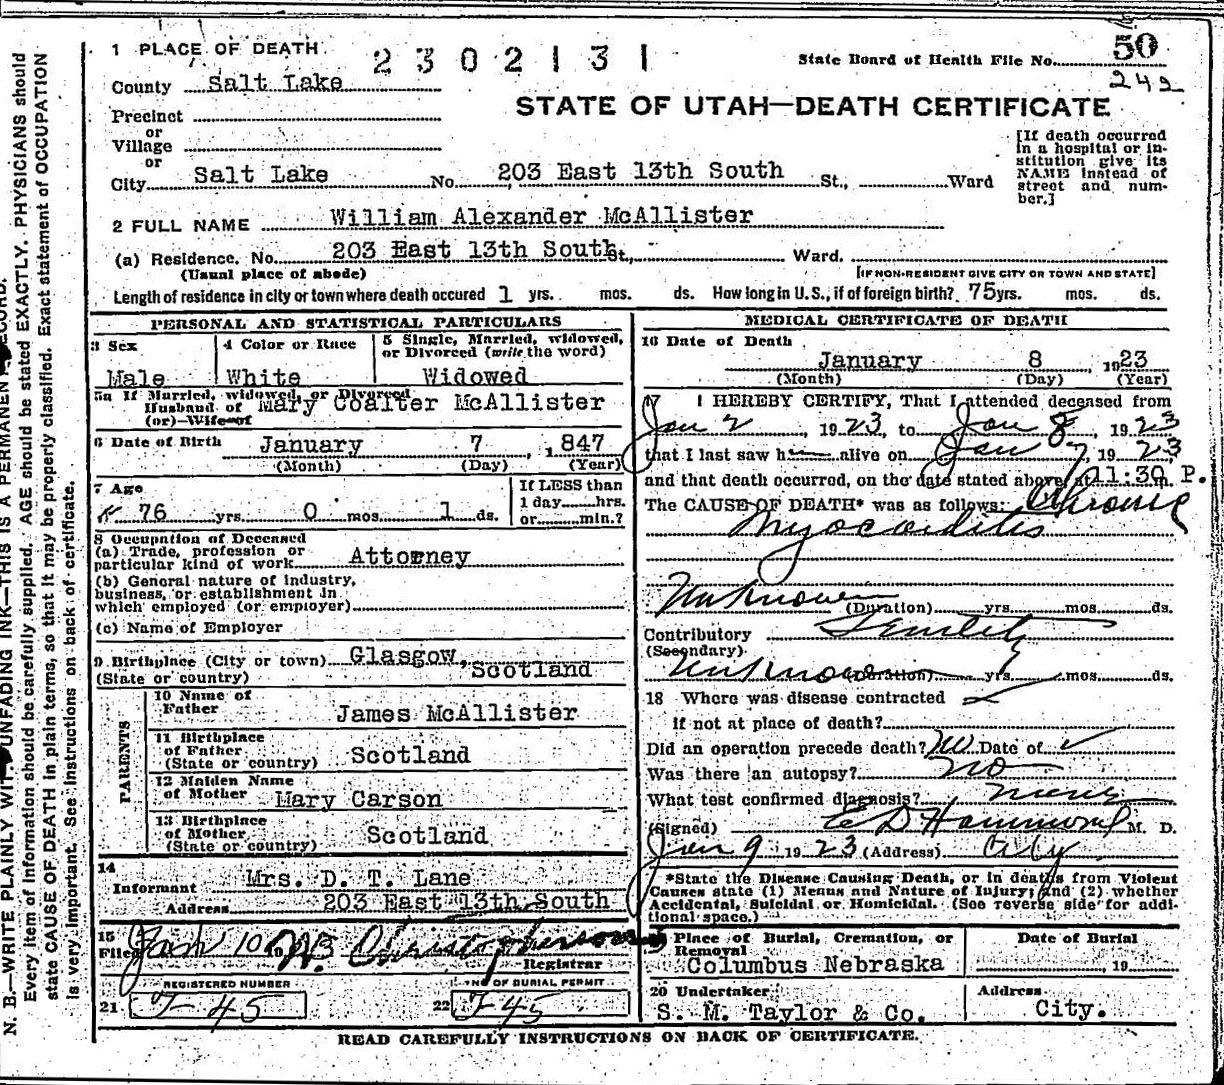 50
1 PLACE OF DEATH 2 3 0 2 1 3 1 State Board of Health File No.
242
County Salt Lake
STATE OF UTAH—DEATH CERTIFICATE
Precinct
or
Village
or
City Salt Lake No. 203 East 13th South St., Ward
[If death occurred
in a hospital or in-
stitution give its
NAME instead of
street and num-
ber.]
2 FULL NAME William Alexander McAllister
(a) Residence. No. 203 East 13th South St., Ward.
(Usual place of abode) [IF NON-RESIDENT GIVE CITY OR TOWN AND STATE]
Length of residence in city or town where death occured 1 yrs. mos. ds. How long in U.S., if of foreign birth? 75 yrs. mos. ds.
PERSONAL AND STATISTICAL PARTICULARS
3 Sex
Male
4 Color or Race
White
5 Single, Married, widowed,
or Divorced (write the word)
Widowed
5a If Married, widowed, or Divorced
Husband of Mary Coalter McAllister
(or) Wife of
6 Date of Birth January 7, 1847
(Month) (Day) (Year)
7 Age
76 yrs. 0 mos. 1 ds.
If LESS than
1 day hrs.
or min.?
8 Occupation of Deceased
(a) Trade, profession or
particular kind of work Attorney
(b) General nature of industry,
business, or establishment in
which employed (or employer)
(c) Name of Employer
9 Birthplace (City or town) Glasgow, Scotland
(State or country)
PARENTS
10 Name of
Father James McAllister
11 Birthplace
of Father
(State or country) Scotland
12 Maiden Name
of Mother Mary Carson
13 Birthplace
of Mother
(State or country) Scotland
14
Informant Mrs. D. T. Lane
Address 203 East 13th South
15
Filed Jan 10 1923 Christopherson
Registrar
REGISTERED NUMBER
21 J-45
NO OF BURIAL PERMIT
22 J-45
MEDICAL CERTIFICATE OF DEATH
16 Date of Death
January 8, 1923
(Month) (Day) (Year)
17 I HEREBY CERTIFY, That I attended deceased from
Jan 2, 1923, to Jan 8, 1923
that I last saw h alive on Jan 7, 1923
and that death occurred, on the date stated above, at 11:30 P. m.
The CAUSE OF DEATH* was as follows: Chronic
Myocarditis
Unknown (Duration) yrs. mos. ds.
Contributory Senility
(Secondary)
Unknown (Duration) yrs. mos. ds.
18 Where was disease contracted
if not at place of death?
Did an operation precede death? No Date of
Was there an autopsy? No
What test confirmed diagnosis?
(Signed) E D Hammond M. D.
Jan 9, 1923 (Address) City
*State the Disease Causing Death, or in deaths from Violent
Causes state (1) Means and Nature of Injury; and (2) whether
Accidental, Suicidal or Homicidal. (See reverse side for addi-
tional space.)
19 Place of Burial, Cremation, or
Removal
Columbus Nebraska
Date of Burial
, 19
20 Undertaker
S. M. Taylor & Co.
Address
City.
READ CAREFULLY INSTRUCTIONS ON BACK OF CERTIFICATE.
N. B.—WRITE PLAINLY WITH UNFADING INK—THIS IS A PERMANENT RECORD.
Every item of information should be carefully supplied. AGE should be stated EXACTLY. PHYSICIANS should
state CAUSE OF DEATH in plain terms, so that it may be properly classified. Exact statement of OCCUPATION
is very important. See instructions on back of certificate.